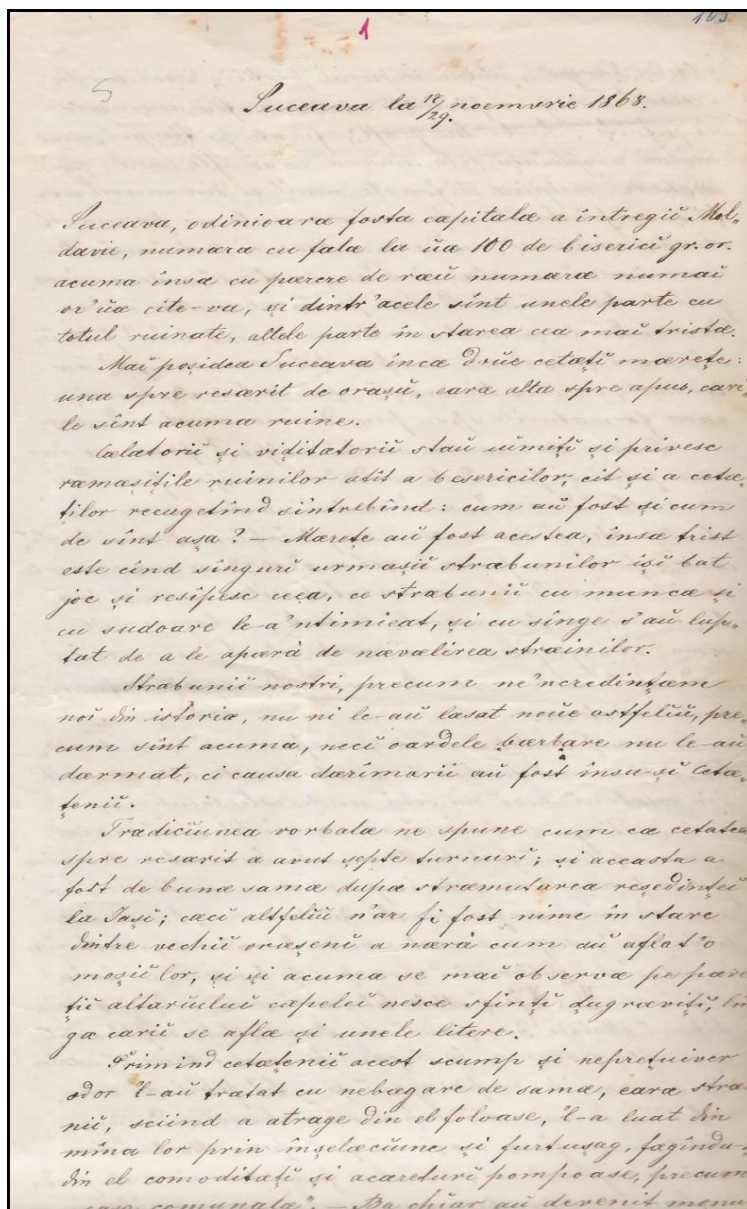 1
103
5
Suceava la 17/29. noemvrie 1868.
Suceava, odinioaræ fosta capitalæ a întregiĭ Mol-
davie, numæra cu fala la úa 100 de bisericĭ gr. or.
acuma însæ cu pærere de ræŭ numæræ numaĭ
vr'úa cîte-va, și dintr'acele sînt unele parte cu
totul ruinate, altele parte în starea cea maĭ tristæ.
Maĭ poșidea Suceava încæ dóue cetæțĭ mærețe:
una spre resærit de orașŭ, earæ alta spre apus, cari-
le sînt acuma ruine.
Cælætoriĭ și viditatoriĭ staŭ uimițĭ și privesc
ræmæsițile ruinilor atît a besericilor, cît și a cetæ-
ților recugetînd s'întrebînd: cum aŭ fost și cum
de sînt așa? — Mærețe aŭ fost acestea, însæ trist
este cînd singurĭ urmașiĭ stræbunilor îșĭ bat
joc și resipesc ceea, ce stræbuniĭ cu muncæ și
cu sudoare le-a'ntimieat, și cu sînge s'aŭ lup-
tat de a le apæra de nævælirea stræinilor.
Stræbuniĭ nostri, precum ne'ncredințæm
noĭ din istoria, nu ni le-aŭ læsat nóue astfeliŭ, pre-
cum sînt acuma, necĭ oardele bærbare nu le-aŭ
dærmat, ci causa dærîmariĭ aŭ fost însu-șĭ cetæ-
țeniĭ.
Tradiciunea vorbalæ ne spune cum cæ cetatea
spre resærit a avut șepte turnurĭ; și aceasta a
fost de bunæ samæ dupæ stræmutarea reședințeĭ
la Iașĭ; cæcĭ altfeliŭ n'ar fi fost nime în stare
dintre vechiĭ orășenĭ a næra cum aŭ aflat'o
moșiĭ lor, și și acuma se maĭ observæ pe pære-
țiĭ altariuluĭ capeleĭ nesce sfințĭ zugrævițĭ, lîn
ga cariĭ se aflæ și unele litere.
Primind cetæțeniĭ acest scump și neprețuiver
odor 'l-aŭ tratat cu nebægare de samæ, earæ stræi
niĭ, sciind a atrage din el foloase, 'l-a luat din
mîna lor prin înșelæciune și furtușag, fægîndu-
din el comoditæțĭ și acareturĭ pompoase, precum
casa comunala". — Ba chiar aŭ devenit monu